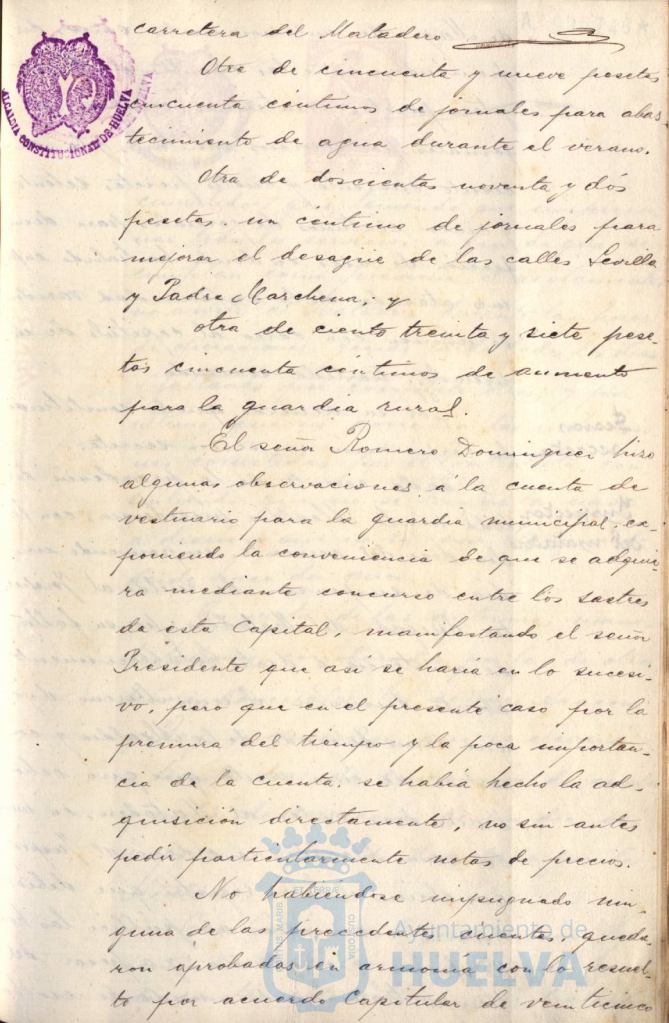 carretera del Matadero
Otra de cincuenta y nueve pesetas
cincuenta céntimos de jornales para abas-
tecimiento de agua durante el verano.
Otra de doscientas noventa y dós
pesetas un céntimo de jornales para
mejorar el desagüe de las calles Sevilla
y Padre Marchena; y
otra de ciento treinta y siete pese-
tas cincuenta céntimos de aumento
para la guardia rural.
El señor Romero Dominguez hizo
algunas observaciones á la cuenta de
vestuario para la guardia municipal, ex-
poniendo la conveniencia de que se adqui-
ra mediante concurso entre los sastres
de esta Capital, manifestando el señor
Presidente que así se haría en lo sucesi-
vo, pero que en el presente caso por la
premura del tiempo y la poca importan-
cia de la cuenta, se había hecho la ad-
quisición directamente, no sin antes
pedir particularmente notas de precios.
No habiéndose impugnado nin-
guna de las precedentes cuentas, queda-
ron aprobadas en armonía con lo resuel-
to por acuerdo Capitular de veinticinco
ALCALDIA CONSTITUCIONAL DE HUELVA
Ayuntamiento de
HUELVA